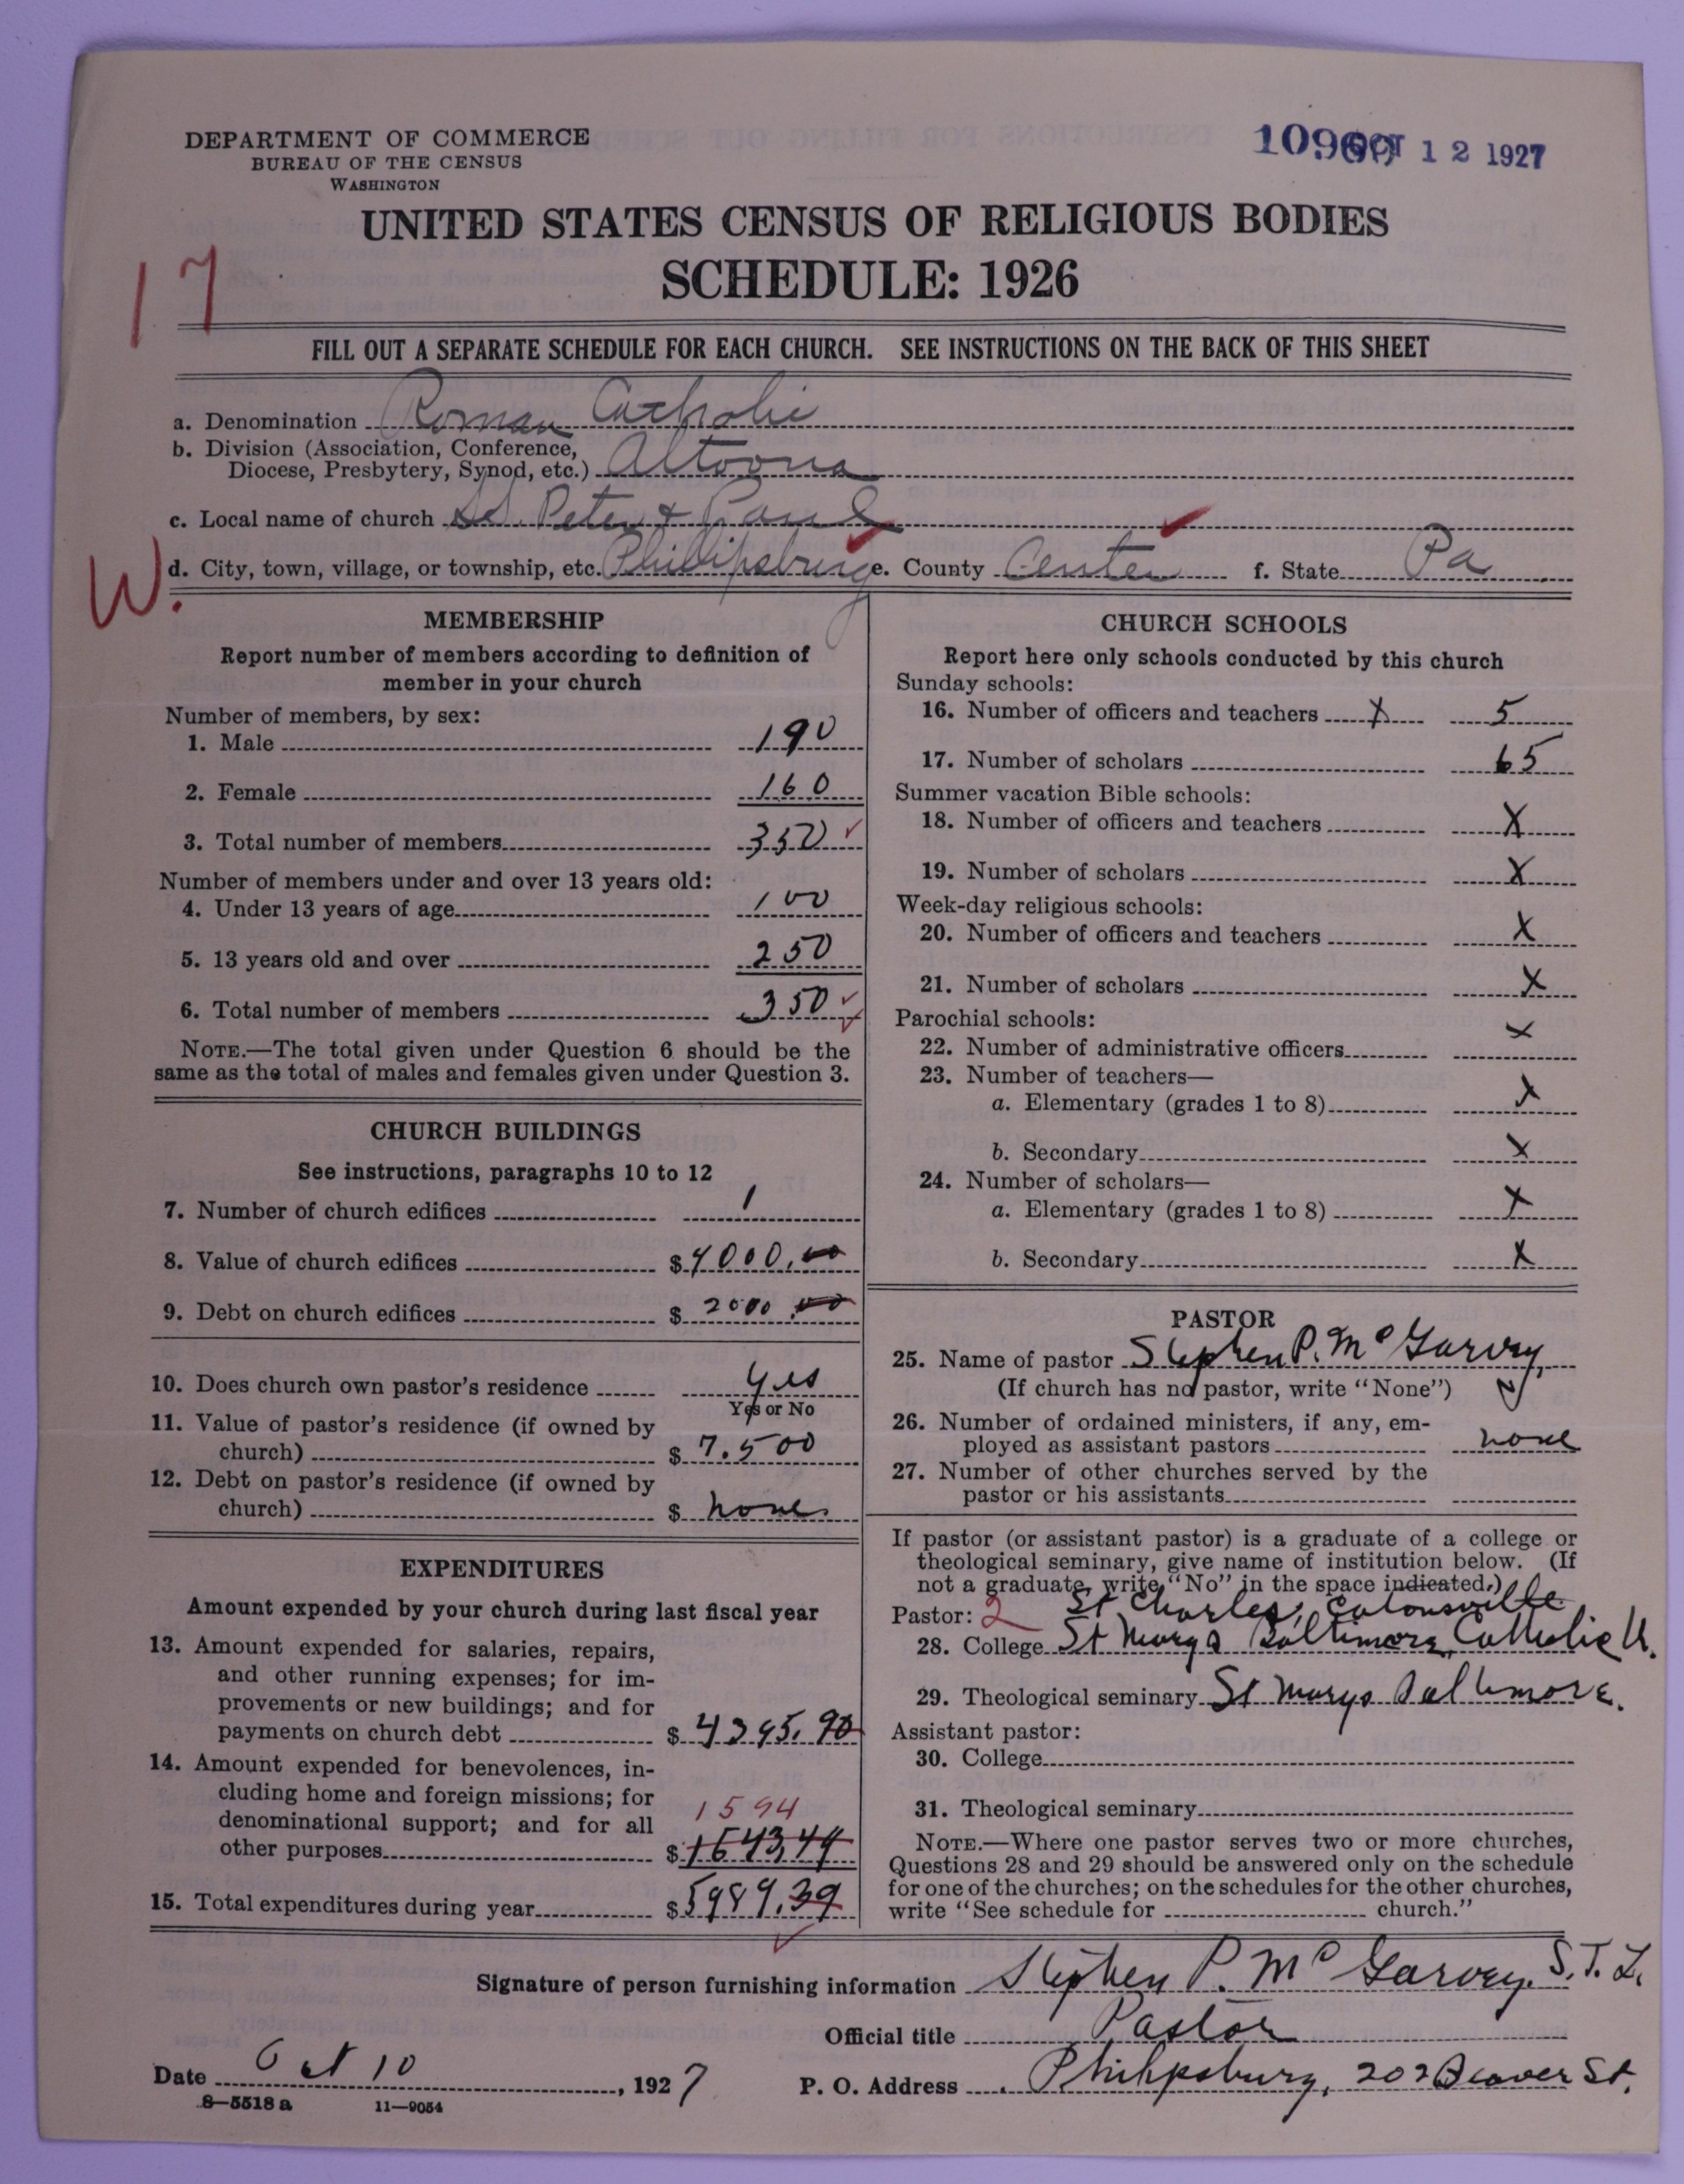 DEPARTMENT OF COMMERCE
BUREAU OF THE CENSUS
WASHINGTON
OCT 12 1927
UNITED STATES CENSUS OF RELIGIOUS BODIES
SCHEDULE: 1926
17
FILL OUT A SEPARATE SCHEDULE FOR EACH CHURCH. SEE INSTRUCTIONS ON THE BACK OF THIS SHEET
a. Denomination Roman Catholic
b. Division (Association, Conference,
Diocese, Presbytery, Synod, etc.) Altoona
c. Local name of church SS. Peter & Paul
W. d. City, town, village, or township, etc. Phillipsburg e. County Center f. State Pa
MEMBERSHIP
Report number of members according to definition of
member in your church
Number of members, by sex:
1. Male 190
2. Female 160
3. Total number of members 350
Number of members under and over 13 years old:
4. Under 13 years of age 100
5. 13 years old and over 250
6. Total number of members 350
NOTE.—The total given under Question 6 should be the
same as the total of males and females given under Question 3.
CHURCH BUILDINGS
See instructions, paragraphs 10 to 12
7. Number of church edifices 1
8. Value of church edifices $ 4000.00
9. Debt on church edifices $ 2000.00
10. Does church own pastor's residence yes
Yes or No
11. Value of pastor's residence (if owned by
church) $ 7.500
12. Debt on pastor's residence (if owned by
church) $ none
EXPENDITURES
Amount expended by your church during last fiscal year
13. Amount expended for salaries, repairs,
and other running expenses; for im-
provements or new buildings; and for
payments on church debt $ 4395.90
14. Amount expended for benevolences, in-
cluding home and foreign missions; for
denominational support; and for all 1594
other purposes $ 1643,44
15. Total expenditures during year $ 5989.39
CHURCH SCHOOLS
Report here only schools conducted by this church
Sunday schools:
16. Number of officers and teachers X 5
17. Number of scholars 65
Summer vacation Bible schools:
18. Number of officers and teachers X
19. Number of scholars X
Week-day religious schools:
20. Number of officers and teachers X
21. Number of scholars X
Parochial schools:
22. Number of administrative officers X
23. Number of teachers—
a. Elementary (grades 1 to 8) X
b. Secondary X
24. Number of scholars—
a. Elementary (grades 1 to 8) X
b. Secondary X
PASTOR
25. Name of pastor Stephen P. McGarvey
(If church has no pastor, write "None")
26. Number of ordained ministers, if any, em-
ployed as assistant pastors none
27. Number of other churches served by the
pastor or his assistants
If pastor (or assistant pastor) is a graduate of a college or
theological seminary, give name of institution below. (If
not a graduate, write "No" in the space indicated.)
Pastor: 2 St Charles, Catonsville
28. College St Marys Baltimore, Catholic U.
29. Theological seminary St Marys Baltimore.
Assistant pastor:
30. College
31. Theological seminary
NOTE.—Where one pastor serves two or more churches,
Questions 28 and 29 should be answered only on the schedule
for one of the churches; on the schedules for the other churches,
write "See schedule for church."
Signature of person furnishing information Stephen P. McGarvey. S.T.L.
Official title Pastor
Date Oct 10, 1927 P. O. Address Philipsburg, 202 Beaver St.
8—5518 a 11—9054